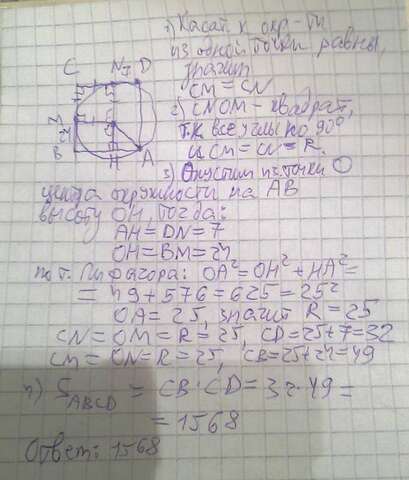 C N 7 D
M
24
B H A
1) Касат. к окр-ти
из одной точки равны,
значит
CM = CN
2) CNOM - квадрат,
т.к все углы по 90°
и CM = CN = R.
3) Опустим из точки O
центра окружности на AB
высоту OH, тогда:
AH = DN = 7
OH = BM = 24
по т. Пифагора: OA² = OH² + HA² =
= 49 + 576 = 625 = 25²
OA = 25, значит R = 25
CN = OM = R = 25, CD = 25 + 7 = 32
CM = ON = R = 25, CB = 25 + 24 = 49
4) S ABCD = CB · CD = 32 · 49 =
= 1568
Ответ: 1568